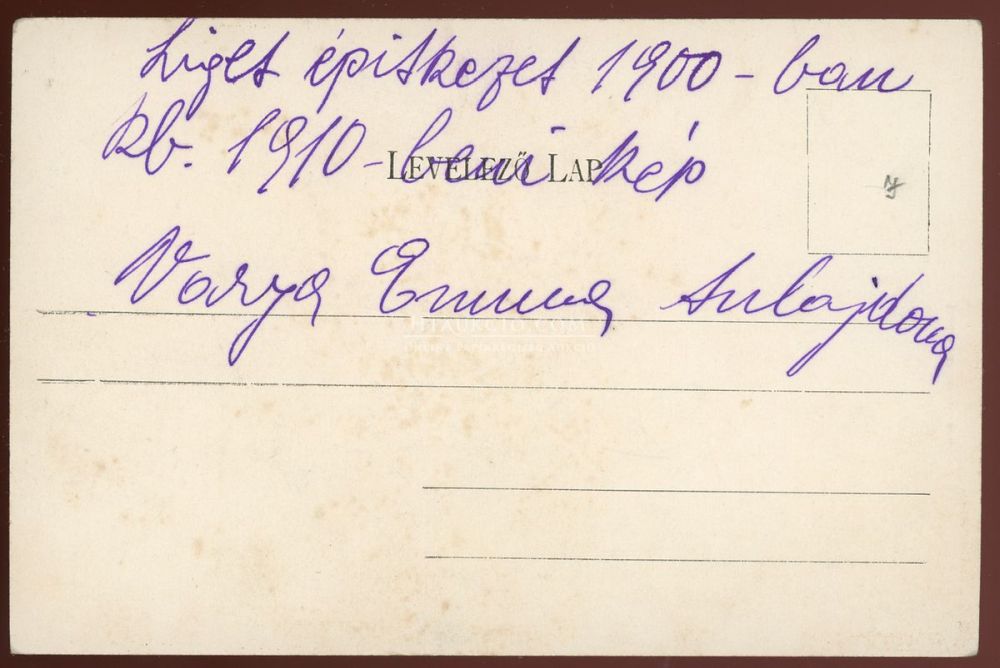 Liget épitkezet 1900-ban
kb. 1910-beni kép
LEVELEZŐ LAP
Varga Emma tulajdona